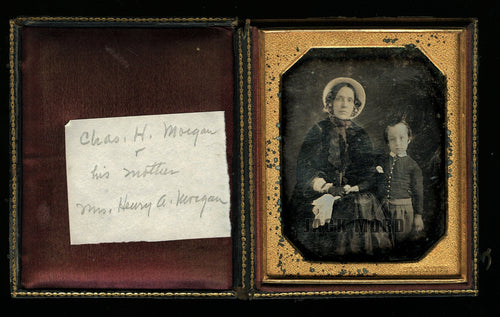 Chas. H. Morgan
&
his mother
Mrs. Henry A. Morgan
JACK MORD